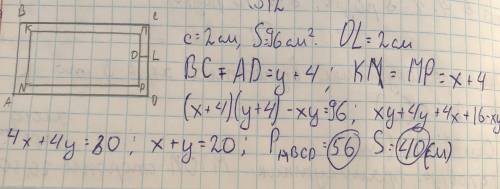 512
B C
K M
O L
N P
A D
c=2см, S=96см². OL=2см
BC=AD=y+4; KM=MP=x+4
(x+4)(y+4)-xy=96; xy+4y+4x+16-xy
4x+4y=80; x+y=20; P ABCD=56 S=40(см)